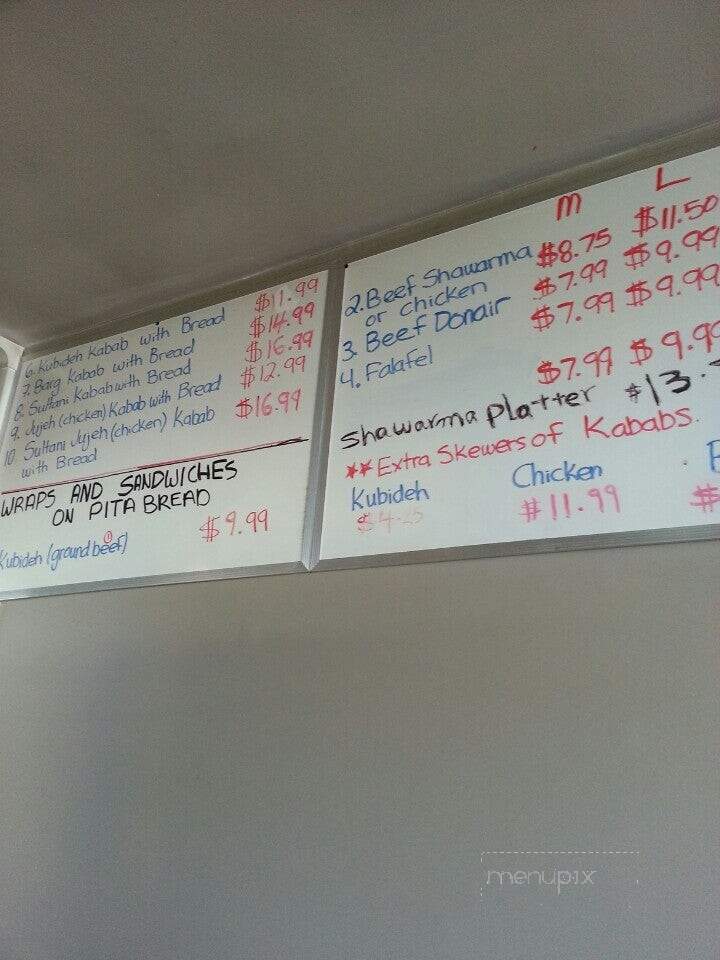 6. Kubideh Kabab with Bread $11.99
7. Barg Kabab with Bread $14.99
8. Sultani Kabab with Bread $16.99
9. Jujeh (chicken) Kabab with Bread $12.99
10 Sultani Jujeh (chicken) Kabab $16.99
with Bread
WRAPS AND SANDWICHES
ON PITA BREAD
Kubideh (ground beef) $9.99
M L
2. Beef Shawarma $8.75 $11.50
or chicken $7.99 $9.99
3. Beef Donair $7.99 $9.99
4. Falafel $7.99 $9.99
Shawarma Platter $13.
** Extra Skewers of Kababs.
Kubideh Chicken
$4.25 $11.99 $
menupix